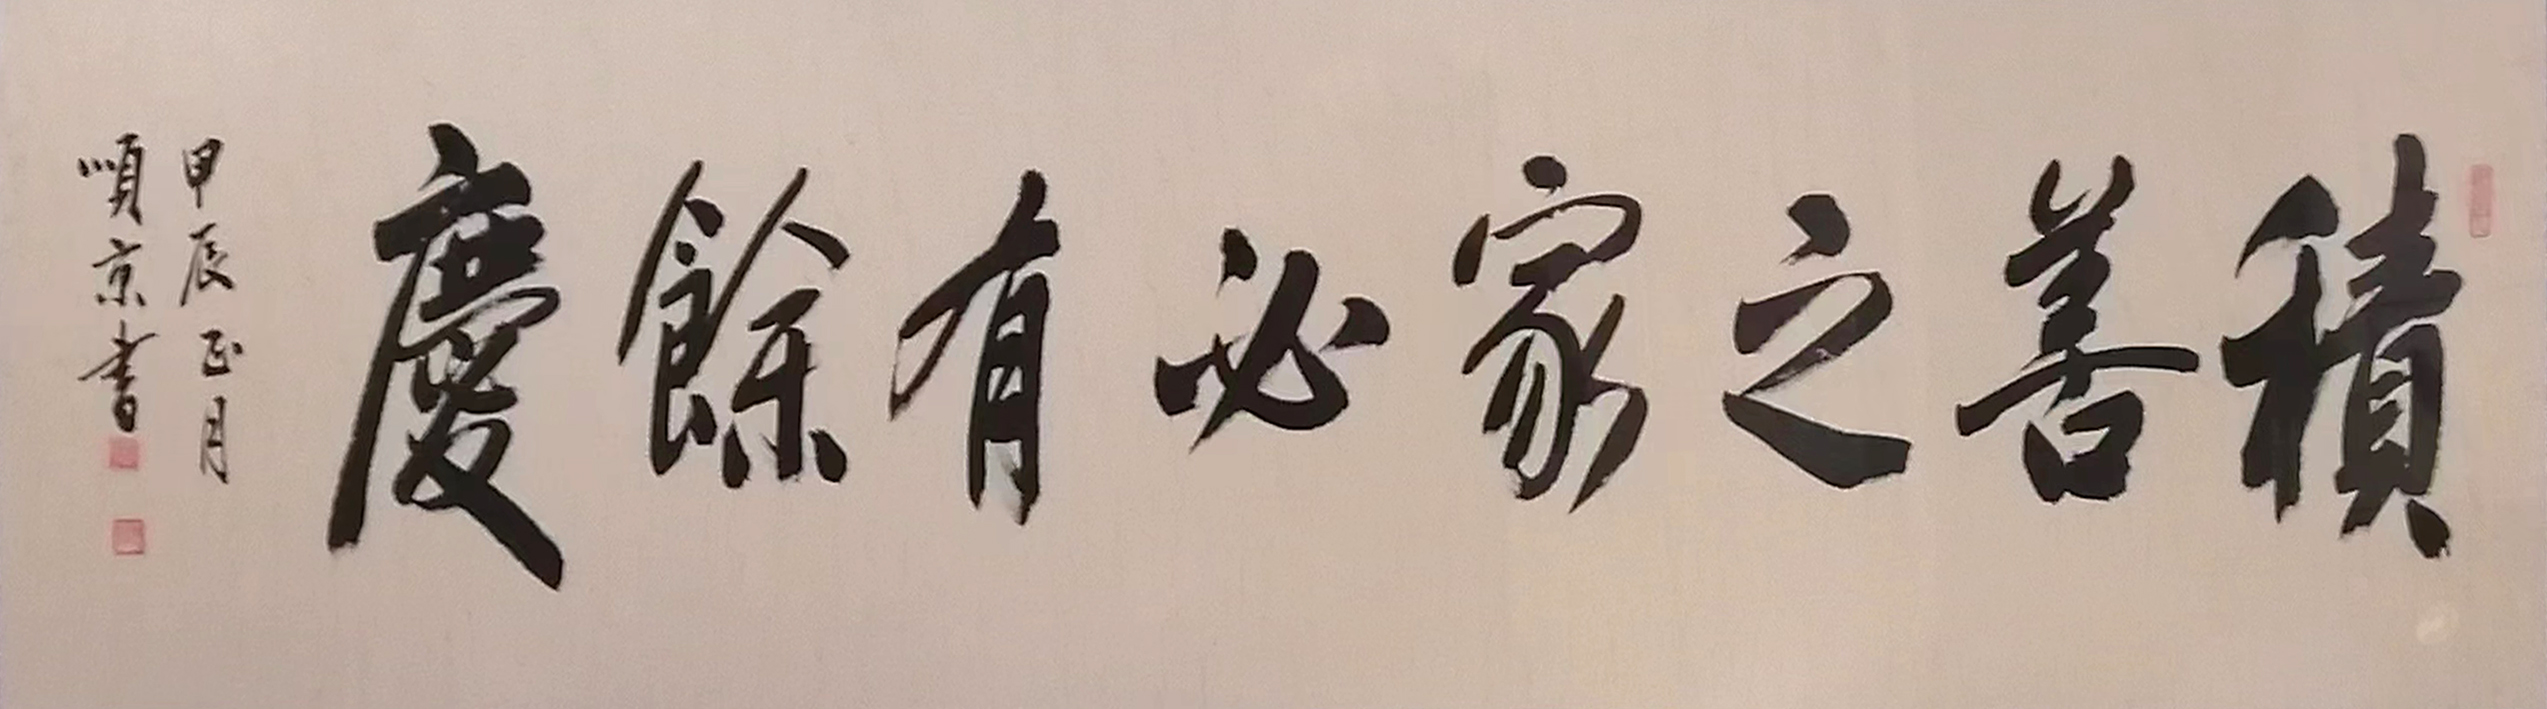 積善之家必有餘慶
甲辰正月
順京書